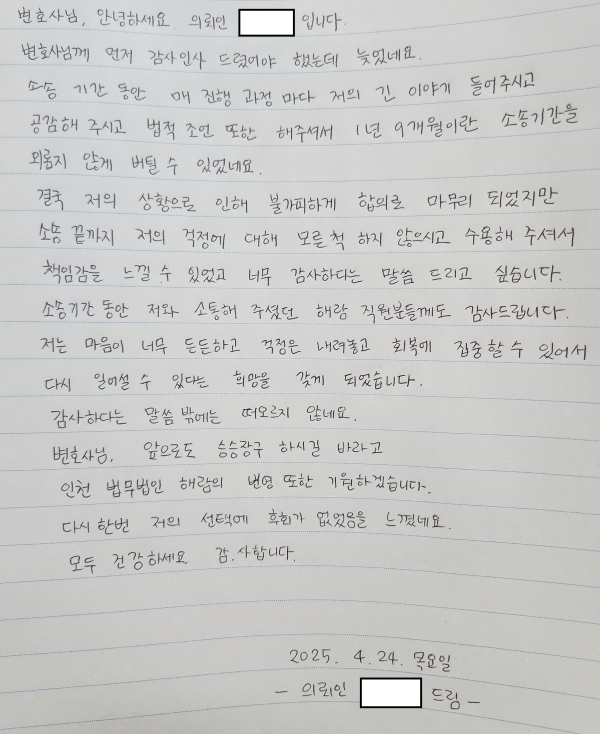 변호사님, 안녕하세요. 의뢰인 입니다.
변호사님께 먼저 감사인사 드렸어야 했는데 늦었네요.
소송 기간 동안 매 진행 과정 마다 저의 긴 이야기 들어주시고
공감해 주시고 법적 조언 또한 해주셔서 1년 9개월이란 소송기간을
외롭지 않게 버틸 수 있었네요.
결국 저의 상황으로 인해 불가피하게 합의로 마무리 되었지만
소송 끝까지 저의 걱정에 대해 모른 척 하지 않으시고 수용해 주셔서
책임감을 느낄 수 있었고 너무 감사하다는 말씀 드리고 싶습니다.
소송기간 동안 저와 소통해 주셨던 해람 직원분들께도 감사드립니다.
저는 마음이 너무 든든하고 걱정은 내려놓고 회복에 집중할 수 있어서
다시 일어설 수 있다는 희망을 갖게 되었습니다.
감사하다는 말씀 밖에는 떠오르지 않네요.
변호사님, 앞으로도 승승장구 하시길 바라고
인천 법무법인 해람의 번영 또한 기원하겠습니다.
다시 한번 저의 선택에 후회가 없었음을 느꼈네요.
모두 건강하세요 감.사합니다.
2025. 4. 24. 목요일
- 의뢰인 드림 -